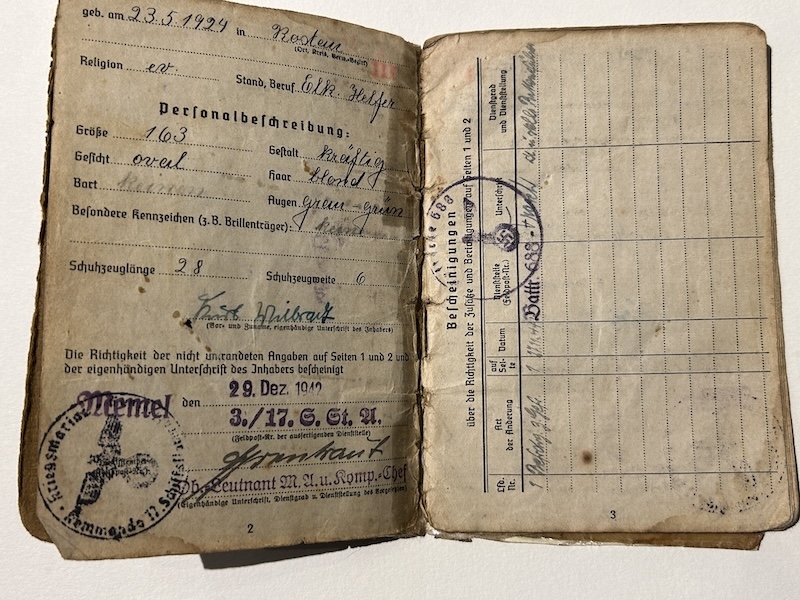 geb. am 23.5.1924 in
(Ort, Kreis, Verw.-Bezirk)
Religion ev. Stand, Beruf Elk. Helfer
Personalbeschreibung:
Größe 163 Gestalt kräftig
Gesicht oval Haar blond
Bart Augen grau-grün
Besondere Kennzeichen (z. B. Brillenträger):
Schuhzeuglänge 28 Schuhzeugweite 6
(Vor- und Zuname, eigenhändige Unterschrift des Inhabers)
Die Richtigkeit der nicht umrandeten Angaben auf Seiten 1 und 2 und
der eigenhändigen Unterschrift des Inhabers bescheinigt
Memel den 29. Dez. 1942
3./17. S. St. A.
(Feldpost-Nr. der ausfertigenden Dienststelle)
Ob.-Leutnant M. A. u. Komp.-Chef
(Eigenhändige Unterschrift, Dienstgrad u. Dienststellung des Vorgesetzten)
Kriegsmarine
Kommando 17.
2
Bescheinigungen
über die Richtigkeit der Zusätze und Berichtigungen auf Seiten 1 und 2
Lfd. Nr.
Art der Änderung
auf Seite
Datum
Dienststelle (Feldpost-Nr.)
Unterschrift
Dienstgrad und Dienststellung
1
Battr. 688
3